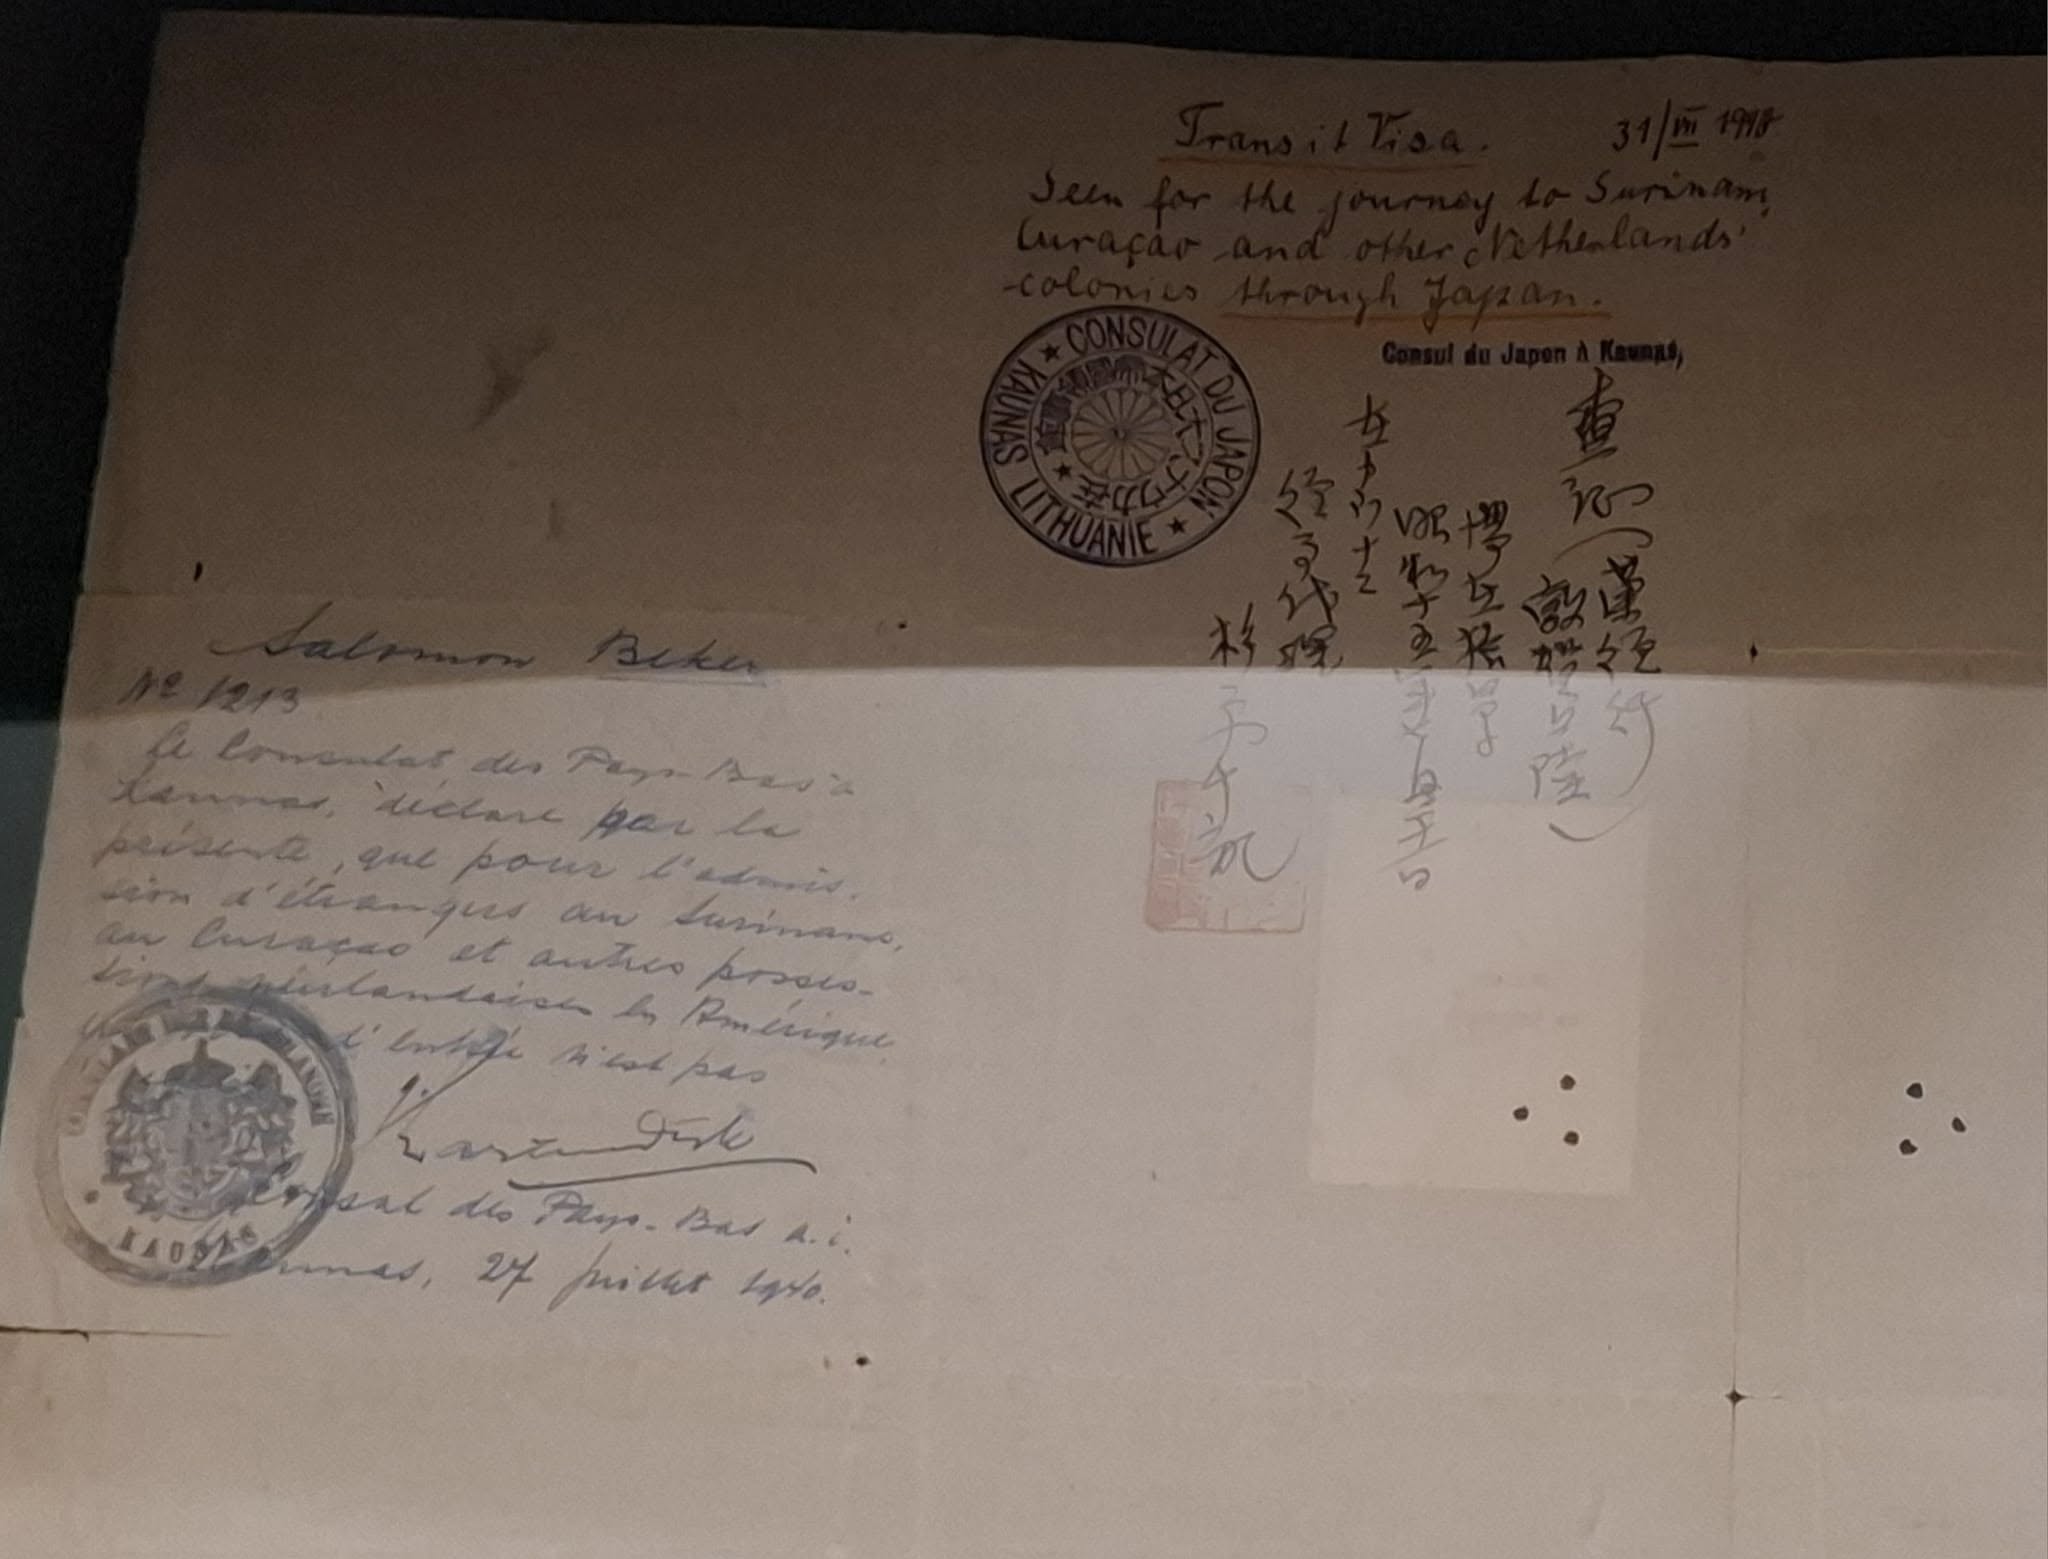 Transit Visa. 31/VII 1940
Seen for the journey to Surinam,
Curaçao and other Netherlands'
colonies through Japan.
Consul du Japon à Kaunas,
CONSULAT DU JAPON
KAUNAS LITHUANIE
在カウナス大日本帝國領事館
査証
敦賀上陸
昭和十五年七月三十一日
領事代理
杉原千畝
Salomon Beker
No 1213
Le Consulat des Pays-Bas à
Kaunas, déclare par la
présente, que pour l'admis-
sion d'étrangers au Surinam,
au Curaçao et autres posses-
sions néerlandaises en Amérique,
d'entrée n'est pas
Consul des Pays-Bas a.i.
Kaunas, 27 juillet 1940.
KAUNAS